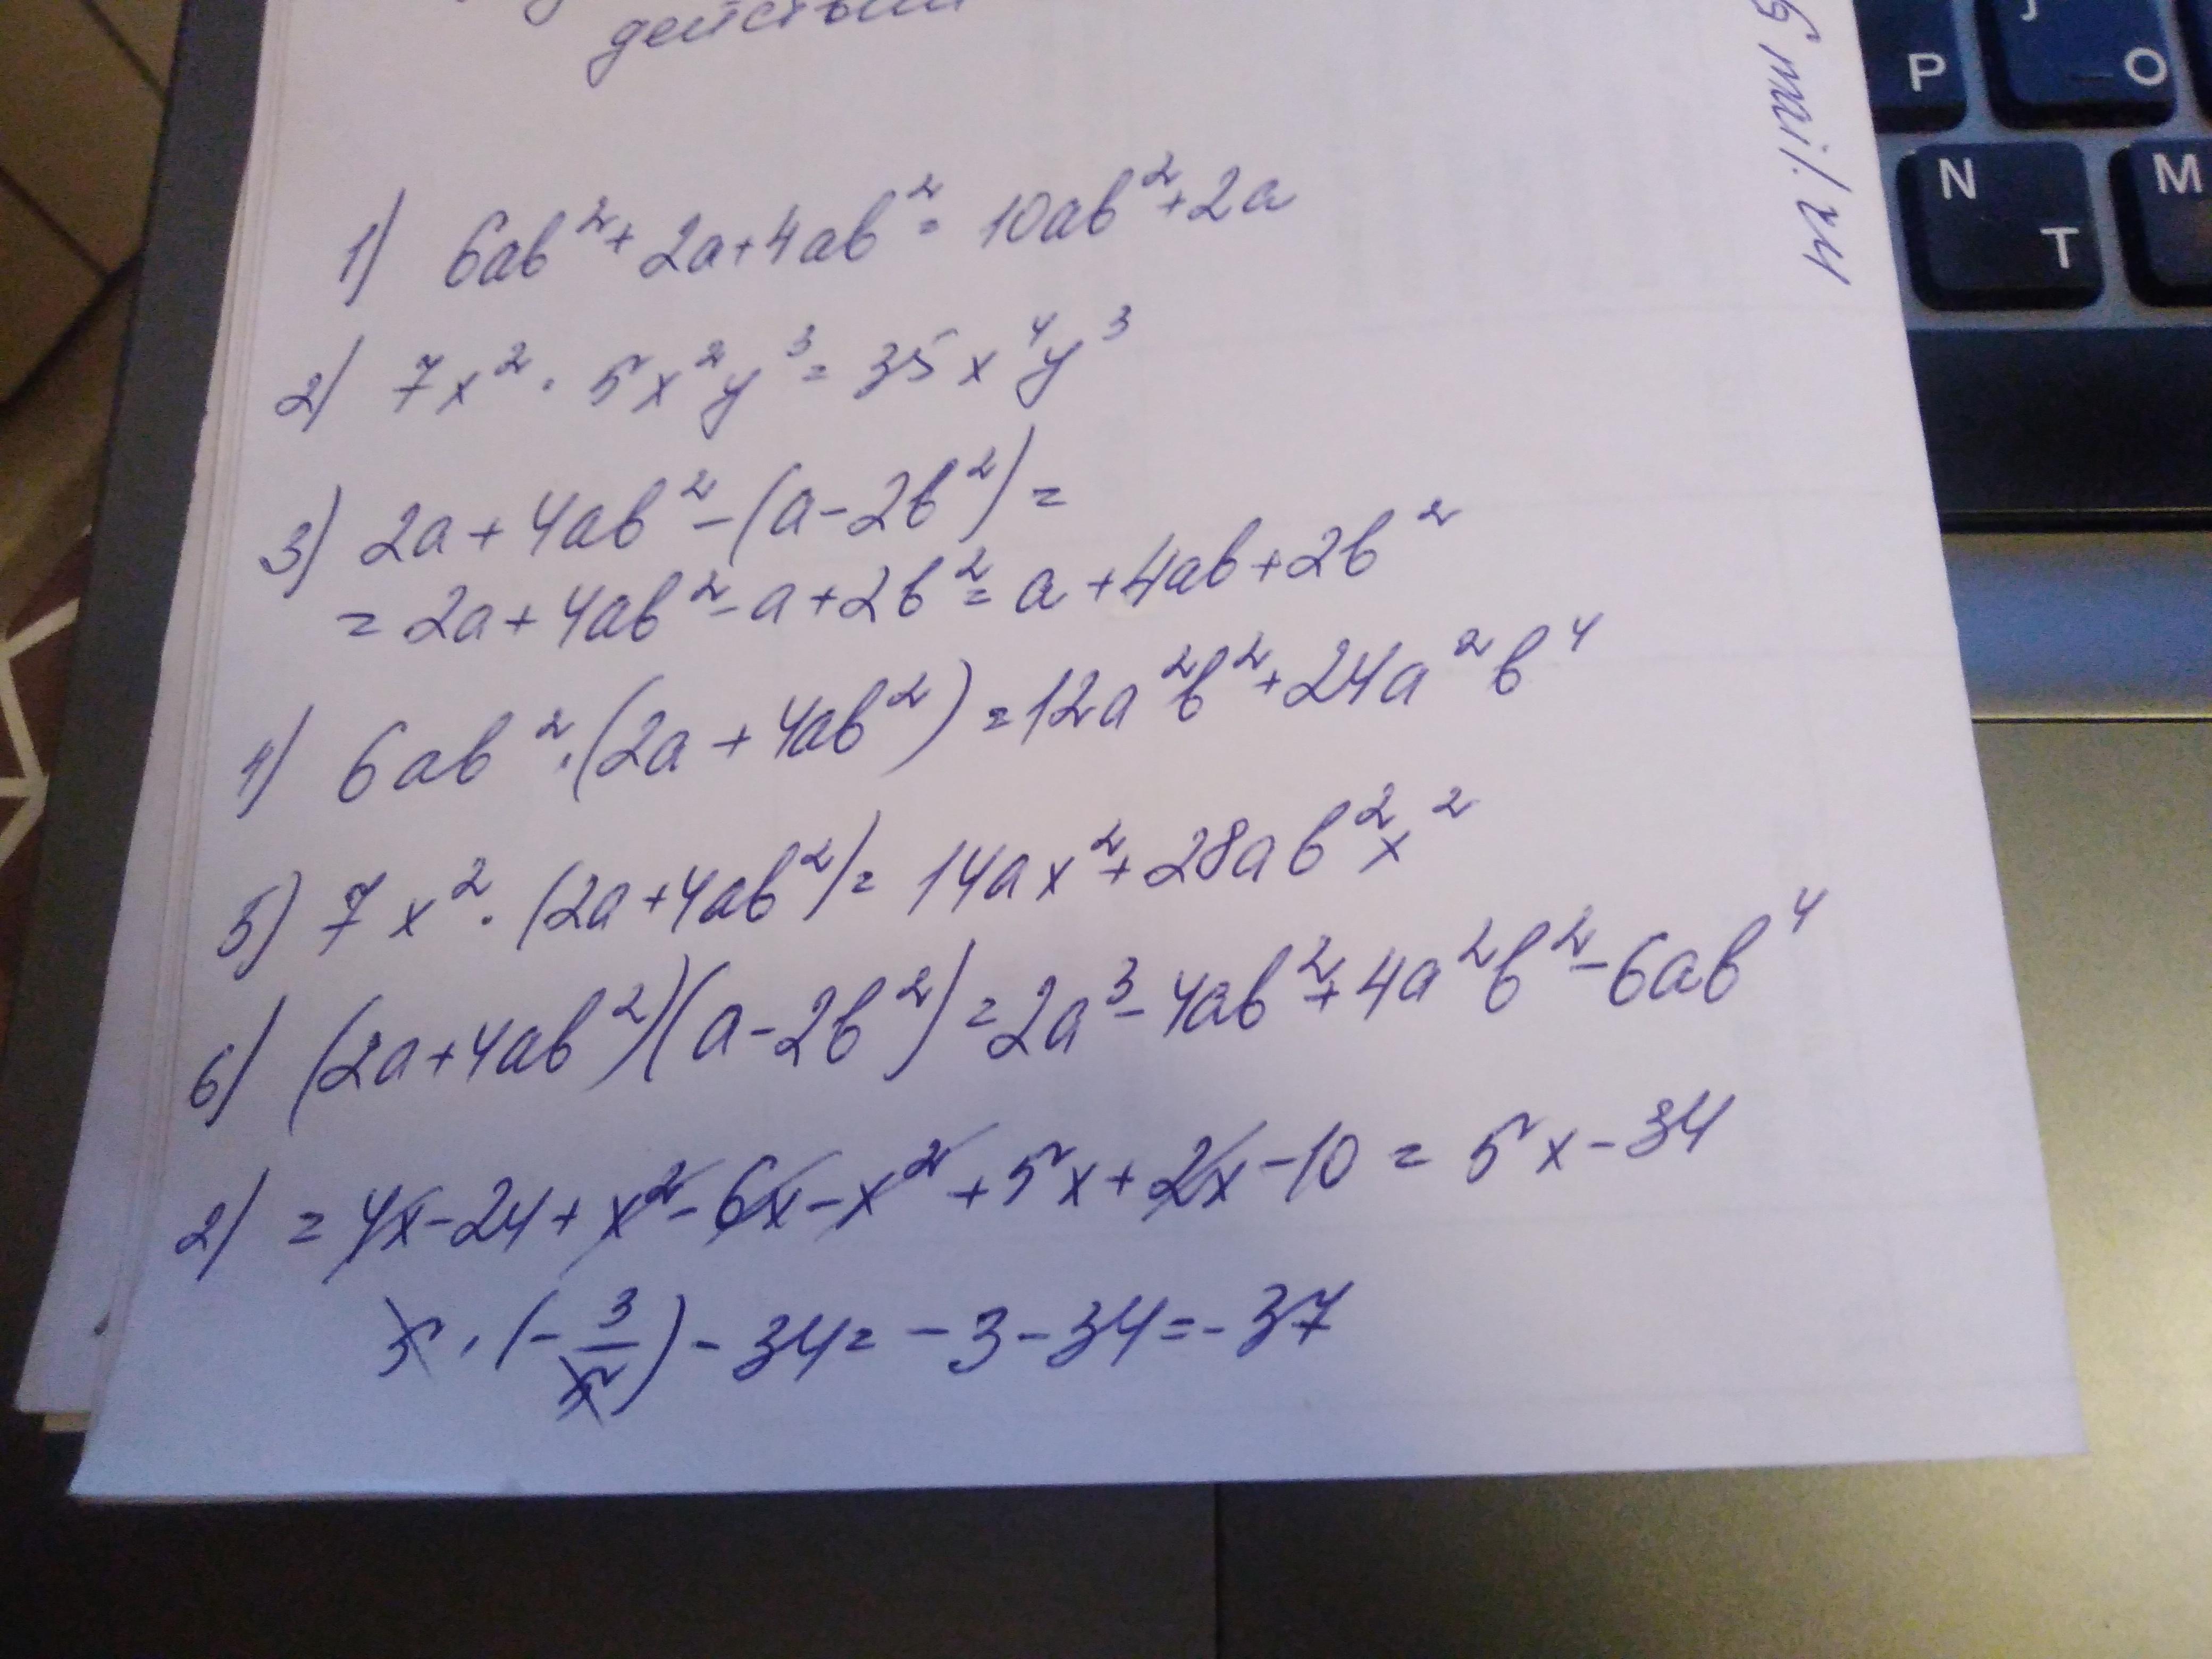 действи
1) 6ab² + 2a + 4ab² = 10ab² + 2a
2) 7x² · 5x²y³ = 35x⁴y³
3) 2a + 4ab² - (a - 2b²) =
= 2a + 4ab² - a + 2b² = a + 4ab + 2b²
4) 6ab² · (2a + 4ab²) = 12a²b² + 24a²b⁴
5) 7x² · (2a + 4ab²) = 14ax² + 28ab²x²
6) (2a + 4ab²)(a - 2b²) = 2a³ - 4ab² + 4a²b² - 6ab⁴
2) = 4x - 24 + x² - 6x - x² + 5x + 2x - 10 = 5x - 34
5 · (- 3/5) - 34 = - 3 - 34 = - 37
P
O
N
T
M